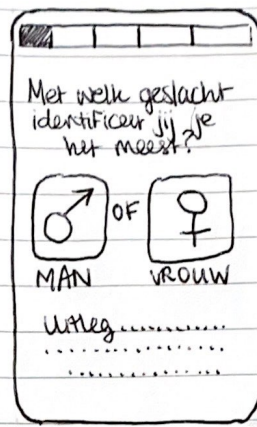 Met welk geslacht
identificeer jij je
het meest?
OF
MAN VROUW
Uitleg............
..................
...............